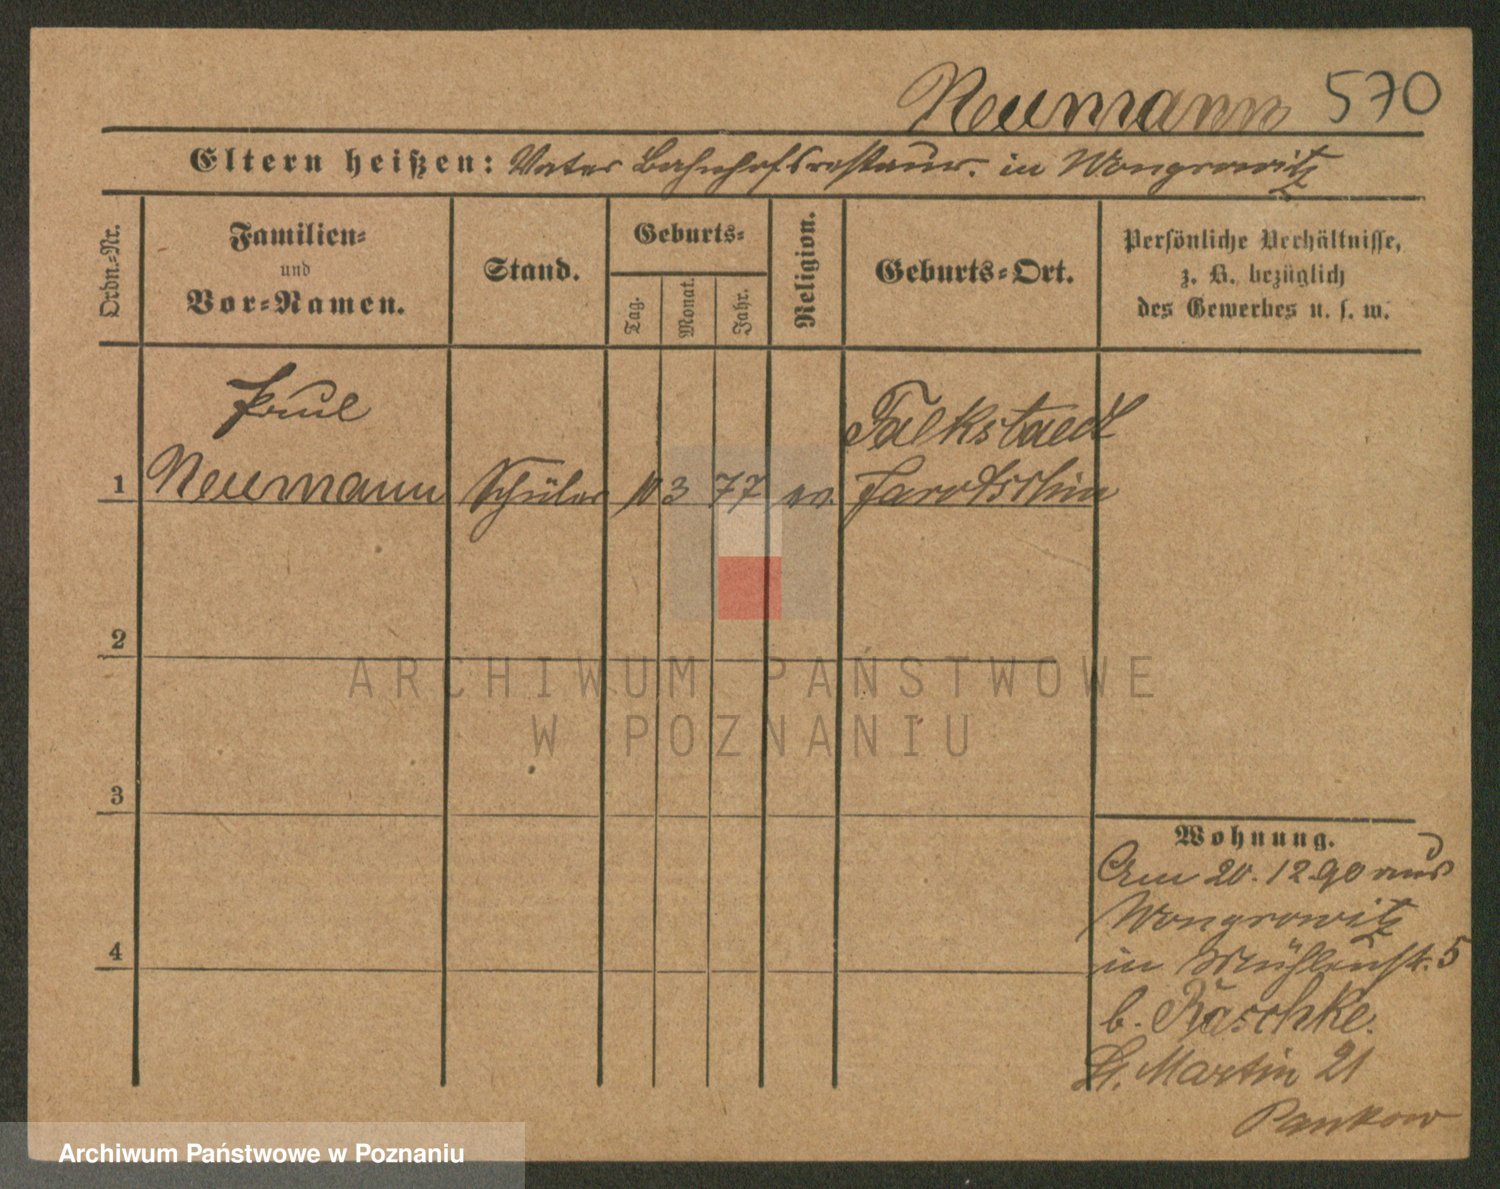 Neumann 570
Eltern heißen: Vater Bahnhofsrestaur. in Wongrowitz
Ordn.-Nr.
Familien-
und
Vor-Namen.
Stand.
Geburts-
Tag.
Monat.
Jahr.
Religion.
Geburts-Ort.
Persönliche Verhältnisse,
z. B. bezüglich
des Gewerbes u. s. w.
Paul
Falkstaedt
1 Neumann Schüler 10 3 77 ev. Jarotschin
2
ARCHIWUM PAŃSTWOWE
W POZNANIU
3
Wohnung.
Am 20.12.90 aus
Wongrowitz
4
in Mühlenst. 5
b. Raschke.
St. Martin 21
Pankow
Archiwum Państwowe w Poznaniu